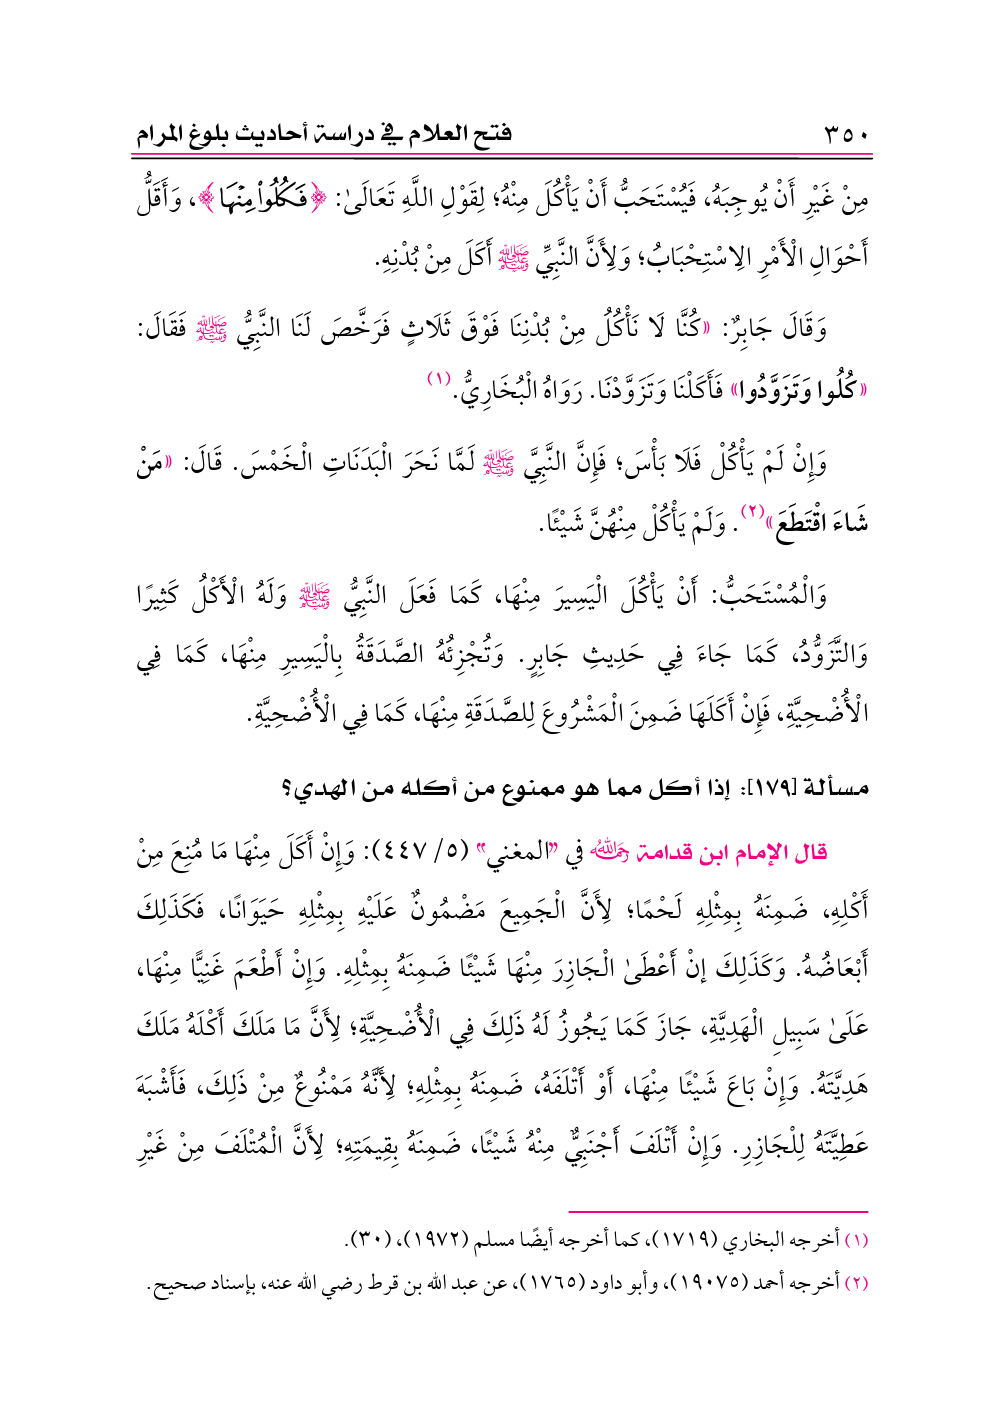 ٣٥٠ فتح العلام في دراسة أحاديث بلوغ المرام
مِنْ غَيْرِ أَنْ يُوجِبَهُ، فَيُسْتَحَبُّ أَنْ يَأْكُلَ مِنْهُ؛ لِقَوْلِ اللَّهِ تَعَالَىٰ: ﴿فَكُلُواْ مِنۡهَا﴾، وَأَقَلُّ
أَحْوَالِ الْأَمْرِ الِاسْتِحْبَابُ؛ وَلِأَنَّ النَّبِيَّ ﷺ أَكَلَ مِنْ بُدْنِهِ.
وَقَالَ جَابِرٌ: «كُنَّا لَا نَأْكُلُ مِنْ بُدْنِنَا فَوْقَ ثَلَاثٍ فَرَخَّصَ لَنَا النَّبِيُّ ﷺ فَقَالَ:
«كُلُوا وَتَزَوَّدُوا» فَأَكَلْنَا وَتَزَوَّدْنَا. رَوَاهُ الْبُخَارِيُّ.(١)
وَإِنْ لَمْ يَأْكُلْ فَلَا بَأْسَ؛ فَإِنَّ النَّبِيَّ ﷺ لَمَّا نَحَرَ الْبَدَنَاتِ الْخَمْسَ. قَالَ: «مَنْ
شَاءَ اقْتَطَعَ»(٢). وَلَمْ يَأْكُلْ مِنْهُنَّ شَيْئًا.
وَالْمُسْتَحَبُّ: أَنْ يَأْكُلَ الْيَسِيرَ مِنْهَا، كَمَا فَعَلَ النَّبِيُّ ﷺ وَلَهُ الْأَكْلُ كَثِيرًا
وَالتَّزَوُّدُ، كَمَا جَاءَ فِي حَدِيثِ جَابِرٍ. وَتُجْزِئُهُ الصَّدَقَةُ بِالْيَسِيرِ مِنْهَا، كَمَا فِي
الْأُضْحِيَّةِ، فَإِنْ أَكَلَهَا ضَمِنَ الْمَشْرُوعَ لِلصَّدَقَةِ مِنْهَا، كَمَا فِي الْأُضْحِيَّةِ.
مسألة [١٧٩]: إذا أكل مما هو ممنوع من أكله من الهدي؟
قال الإمام ابن قدامة رحمه الله في "المغني" (٥/ ٤٤٧): وَإِنْ أَكَلَ مِنْهَا مَا مُنِعَ مِنْ
أَكْلِهِ، ضَمِنَهُ بِمِثْلِهِ لَحْمًا؛ لِأَنَّ الْجَمِيعَ مَضْمُونٌ عَلَيْهِ بِمِثْلِهِ حَيَوَانًا، فَكَذَلِكَ
أَبْعَاضُهُ. وَكَذَلِكَ إنْ أَعْطَىٰ الْجَازِرَ مِنْهَا شَيْئًا ضَمِنَهُ بِمِثْلِهِ. وَإِنْ أَطْعَمَ غَنِيًّا مِنْهَا،
عَلَىٰ سَبِيلِ الْهَدِيَّةِ، جَازَ كَمَا يَجُوزُ لَهُ ذَلِكَ فِي الْأُضْحِيَّةِ؛ لِأَنَّ مَا مَلَكَ أَكْلَهُ مَلَكَ
هَدِيَّتَهُ. وَإِنْ بَاعَ شَيْئًا مِنْهَا، أَوْ أَتْلَفَهُ، ضَمِنَهُ بِمِثْلِهِ؛ لِأَنَّهُ مَمْنُوعٌ مِنْ ذَلِكَ، فَأَشْبَهَ
عَطِيَّتَهُ لِلْجَازِرِ. وَإِنْ أَتْلَفَ أَجْنَبِيٌّ مِنْهُ شَيْئًا، ضَمِنَهُ بِقِيمَتِهِ؛ لِأَنَّ الْمُتْلَفَ مِنْ غَيْرِ
(١) أخرجه البخاري (١٧١٩)، كما أخرجه أيضًا مسلم (١٩٧٢)، (٣٠).
(٢) أخرجه أحمد (١٩٠٧٥)، وأبو داود (١٧٦٥)، عن عبد الله بن قرط رضي الله عنه، بإسناد صحيح.